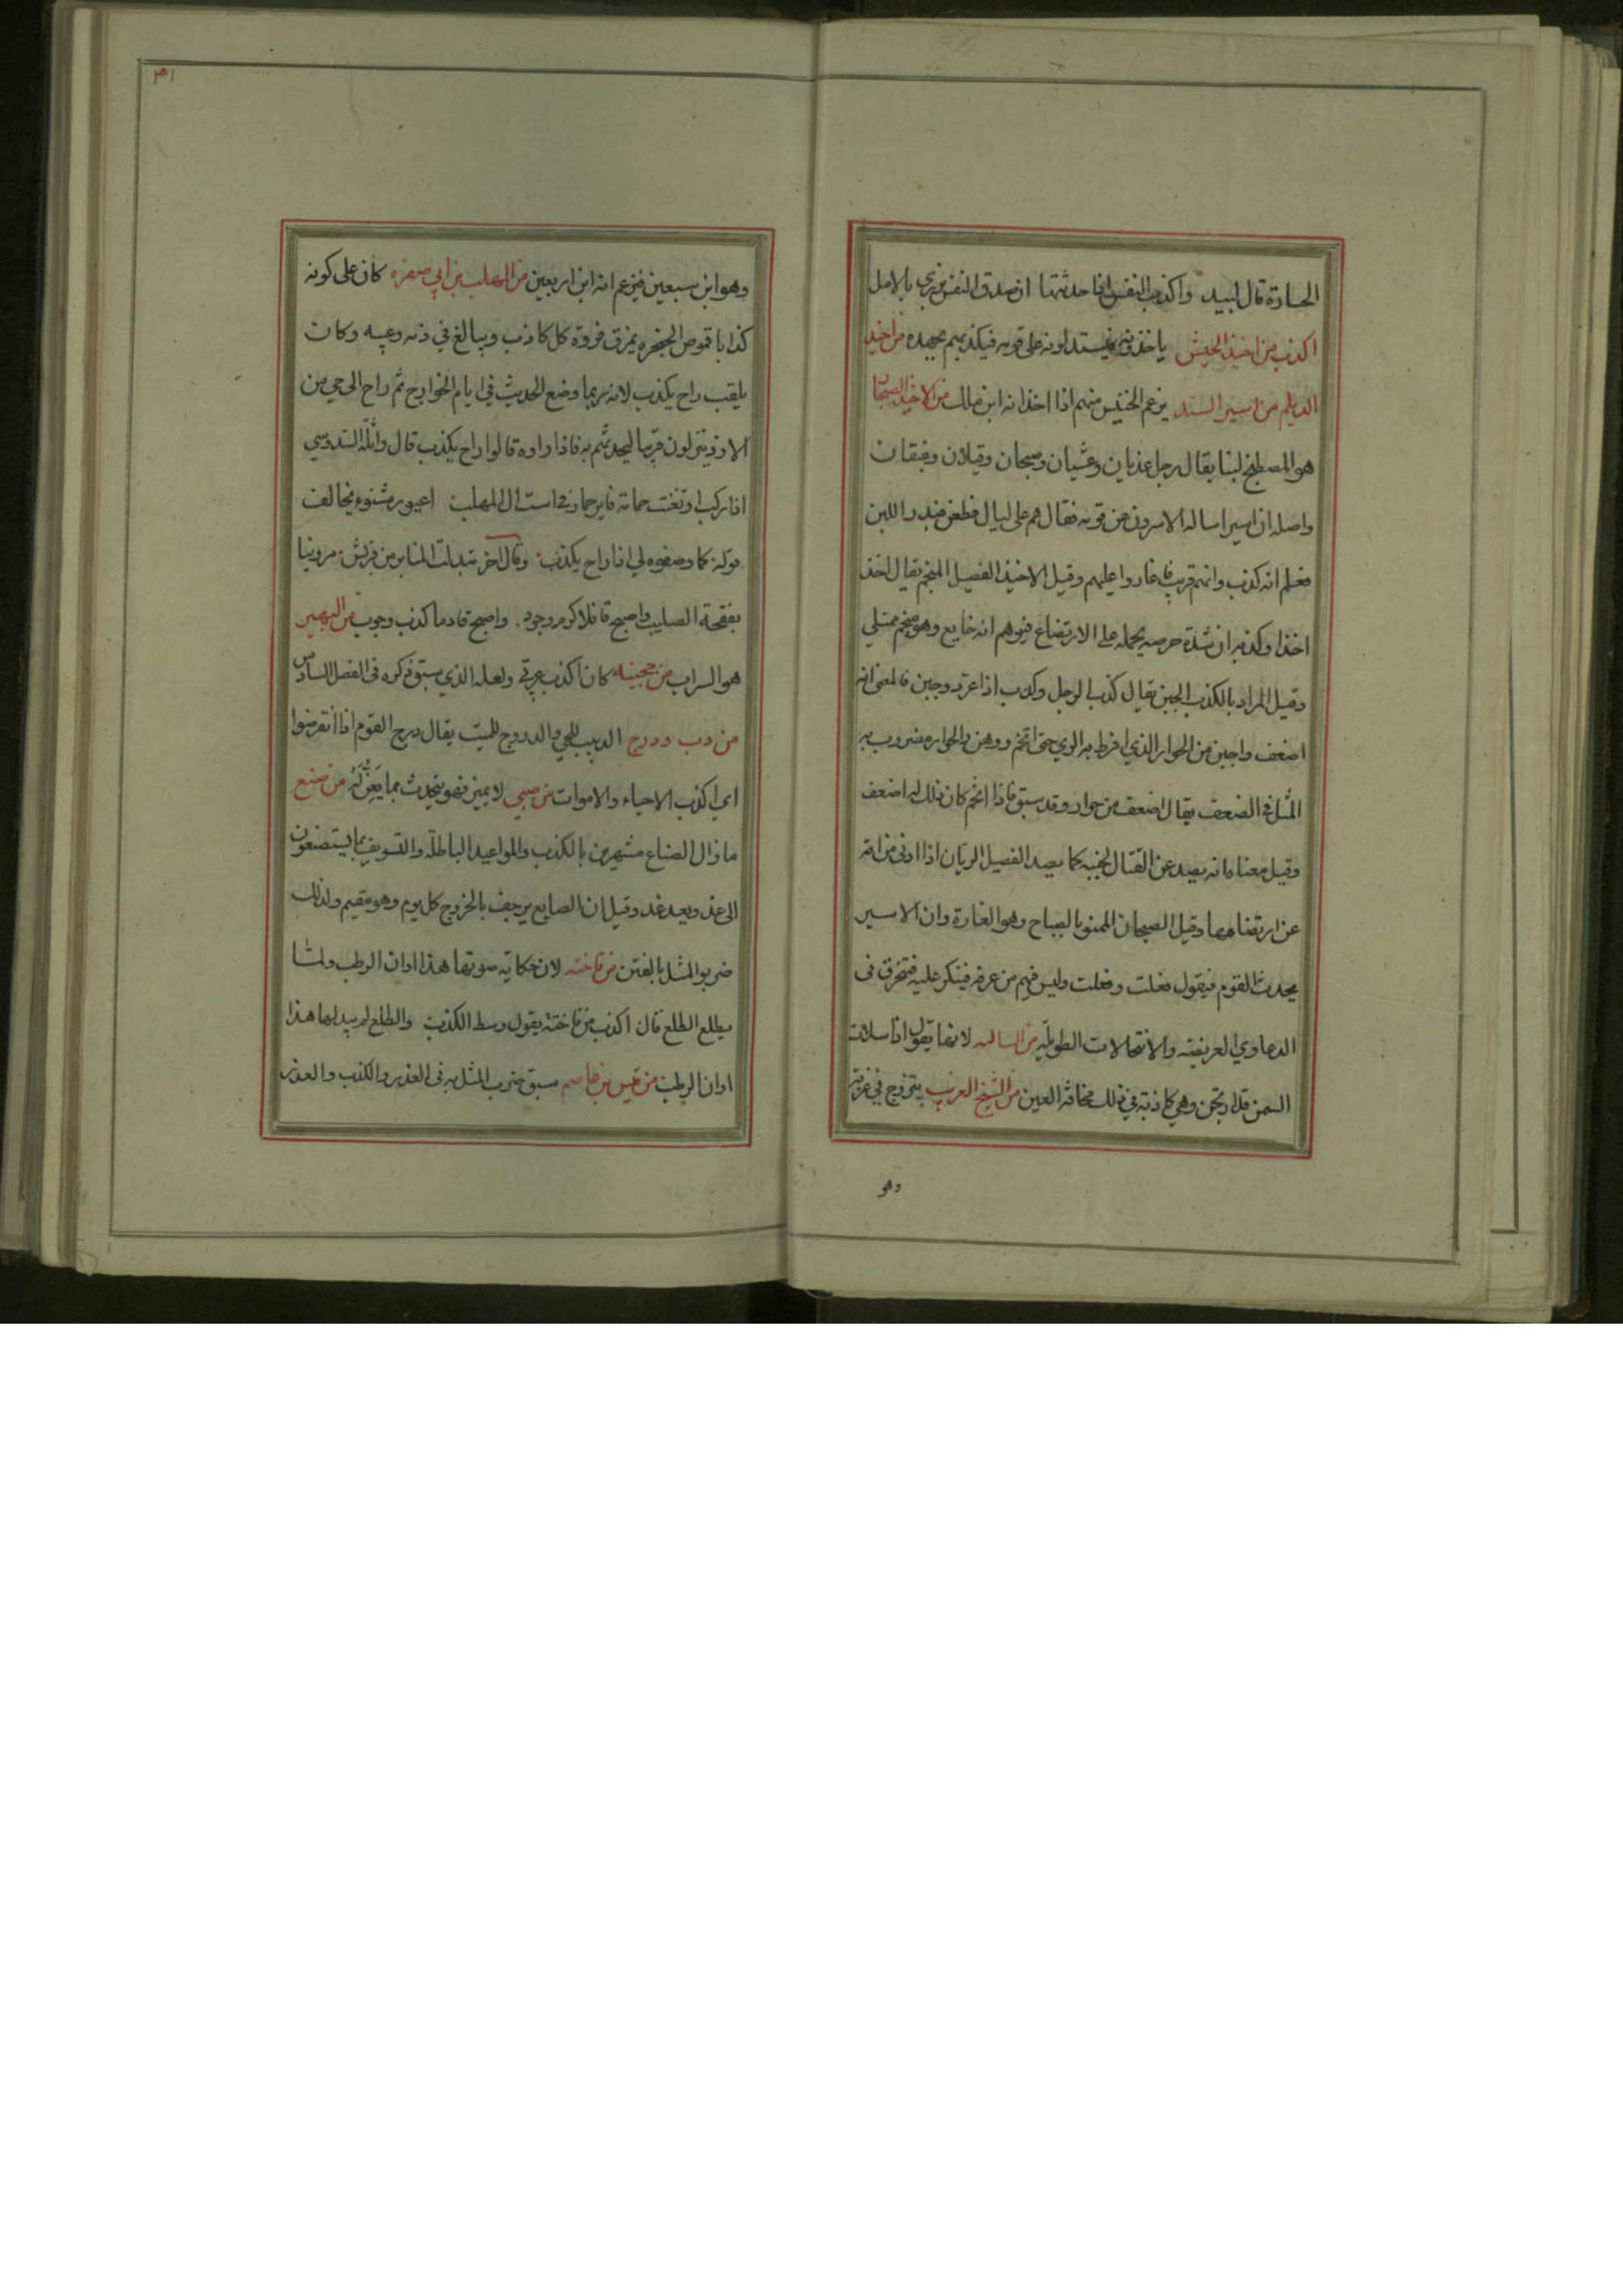 الحادة قال لبيد واكذب النفس اذا حدثتها ان صدق النفس يزري بالامل
اكذب من اخيذ الجيش ياخذونه فيستدلونه على قومه فيكذبهم بجهده من اخيذ
الديلم من اسير السند يزعم الخسيس منهم اذا اخذ انه ابن ملك من الاخيذ الصبحان
هو المصطبح لبنا يقال رجل غديان وعشيان وصبحان وقيلان وغبقان
واصله ان اسيرا ساله الاسرون عن قومه فقال هم على ليال فطعن فبدر اللبن
فعلم انه كذب وانهم قريب فغاروا عليهم وقيل الاخيذ الفصيل المتخم يقال اخذ
اخذا وكذبه ان شدة حرصه يحمله على الارتضاع فيوهم انه جايع وهو متخم ممتلي
وقيل المراد بالكذب الجبن يقال كذب الرجل وكذب اذا عرد وجبن فالمعنى انه
اضعف واجبن من الحوار الذي افرط به الري حتى اتخم ووهن والحوار مضروب به
المثل في الضعف يقال اضعف من حوار وقد سبق فاذا اتخم كان ذلك له اضعف
وقيل معناه انه يصد عن القتال لجبنه كما يصد الفصيل الريان اذا ادنى من امه
عن ارتضاعها وقيل الصبحان الممنو بالصباح وهو الغارة وان الاسير
يحدث القوم فيقول فعلت وفعلت وليس فيهم من عرفه فينكر عليه فتخرق في
الدعاوي العريضة والانتحالات الطويلة من السالئه لانها يقول اذا سلات
السمن قد ارتجن وهي كاذبة في ذلك مخافة العين من الشيخ الغريب يتزوج في غربته
وهو
٤١
وهو ابن سبعين فيزعم انه ابن اربعين من المهلب بن ابي صفره كان على كونه
كذابا قموص الحنجره يمزق فروة كل كاذب ويبالغ في ذمه وعيبه وكان
يلقب راح يكذب لانه ربما وضع الحديث في ايام الخوارج ثم راح الى حي من
الازد ينزلون قربها ليحدثهم به فاذا راوه قالوا راح يكذب قال واثلة السدوسي
اذا ركبا وتغنت حمامة فاير حماد في است ال المهلب اعيور مشنوء يخالف
قوله كما وصفوه لي اذا راح يكذب وقال اخر تبدلت المنابر من قريش مزونيا
بفقحته الصليب واصبح قافلا كرم وجود واصبح قادما كذب وحوب من اليهير
هو السراب من حجينه كان اكذب عرقي ولعله الذي سبق ذكره في الفصل السادس
من دب ودرج الدبيب للحي والدروج للميت يقال درج القوم اذا انقرضوا
اي اكذب الاحياء والاموات من صبي لا يميز فهو يتحدث بما يعن له من صنع
ما زال الصناع مشهرين بالكذب والمواعيد الباطلة والتسويف بما يستصنعون
الى غد وبعد غد وقيل ان الصايع يرجف بالخروج كل يوم وهو مقيم ولذلك
ضربوا المثل بالفتن من فاخته لان حكاية صوتها هذا اوان الرطب ولما
يطلع الطلع قال اكذب من فاختة يقول وسط الكذب والطلع لم يبد لها هذا
اوان الرطب من قيس بن عاصم سبق ضرب المثل به في الغدر والكذب والغدر